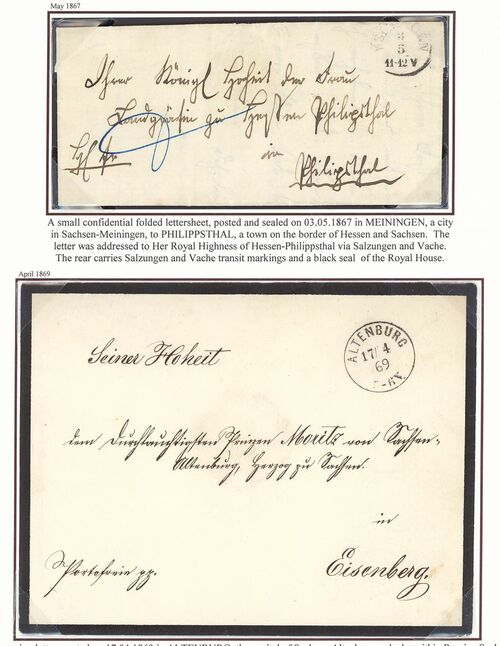 May 1867
5
11-12 V
Ihrer Königl Hoheit der Frau
Landgräfin zu Hessen Philipsthal
in
Philipsthal
A small confidential folded lettersheet, posted and sealed on 03.05.1867 in MEININGEN, a city
in Sachsen-Meiningen, to PHILIPPSTHAL, a town on the border of Hessen and Sachsen. The
letter was addressed to Her Royal Highness of Hessen-Philippsthal via Salzungen and Vache.
The rear carries Salzungen and Vache transit markings and a black seal of the Royal House.
April 1869
ALTENBURG
17/4
69
Seiner Hoheit
dem Durchlauchtigsten Prinzen Moritz von Sachsen-
Altenburg, Herzog zu Sachsen.
in
Portofreie pp.
Eisenberg.